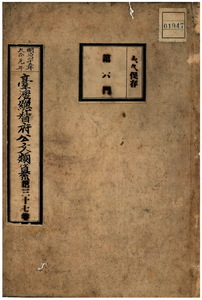 明治四十五年
大正元年
臺灣總督府公文類纂
三十七
永久保存
第八門
01947